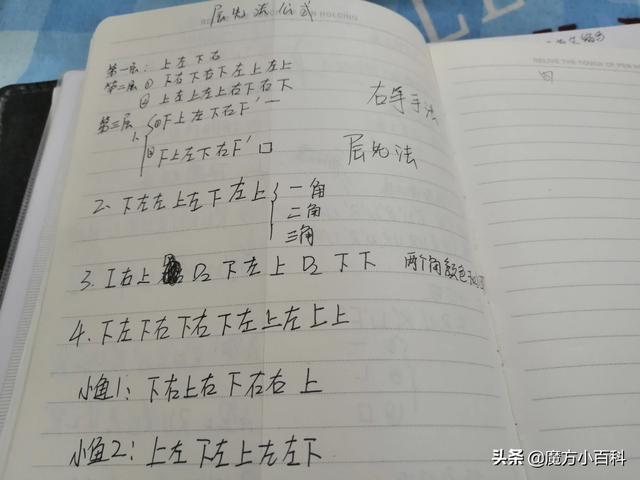 层先法公式
第一层：上左下右
第二层 ① 下右下右下左上左上
② 上左上左上右下右下
右手手法
第三层
1. ① F上左下右F' 一
② F上左下右F' 口
层先法
2. 下左左上左下左上 一角
二角
三角
3. I右上 D2 下左上 D2 下下 两个角颜色
4. 下左下右下右下左上左上上
小鱼1：下右上右下右右上
小鱼2：上左下左上左左下
头条 @魔方小百科